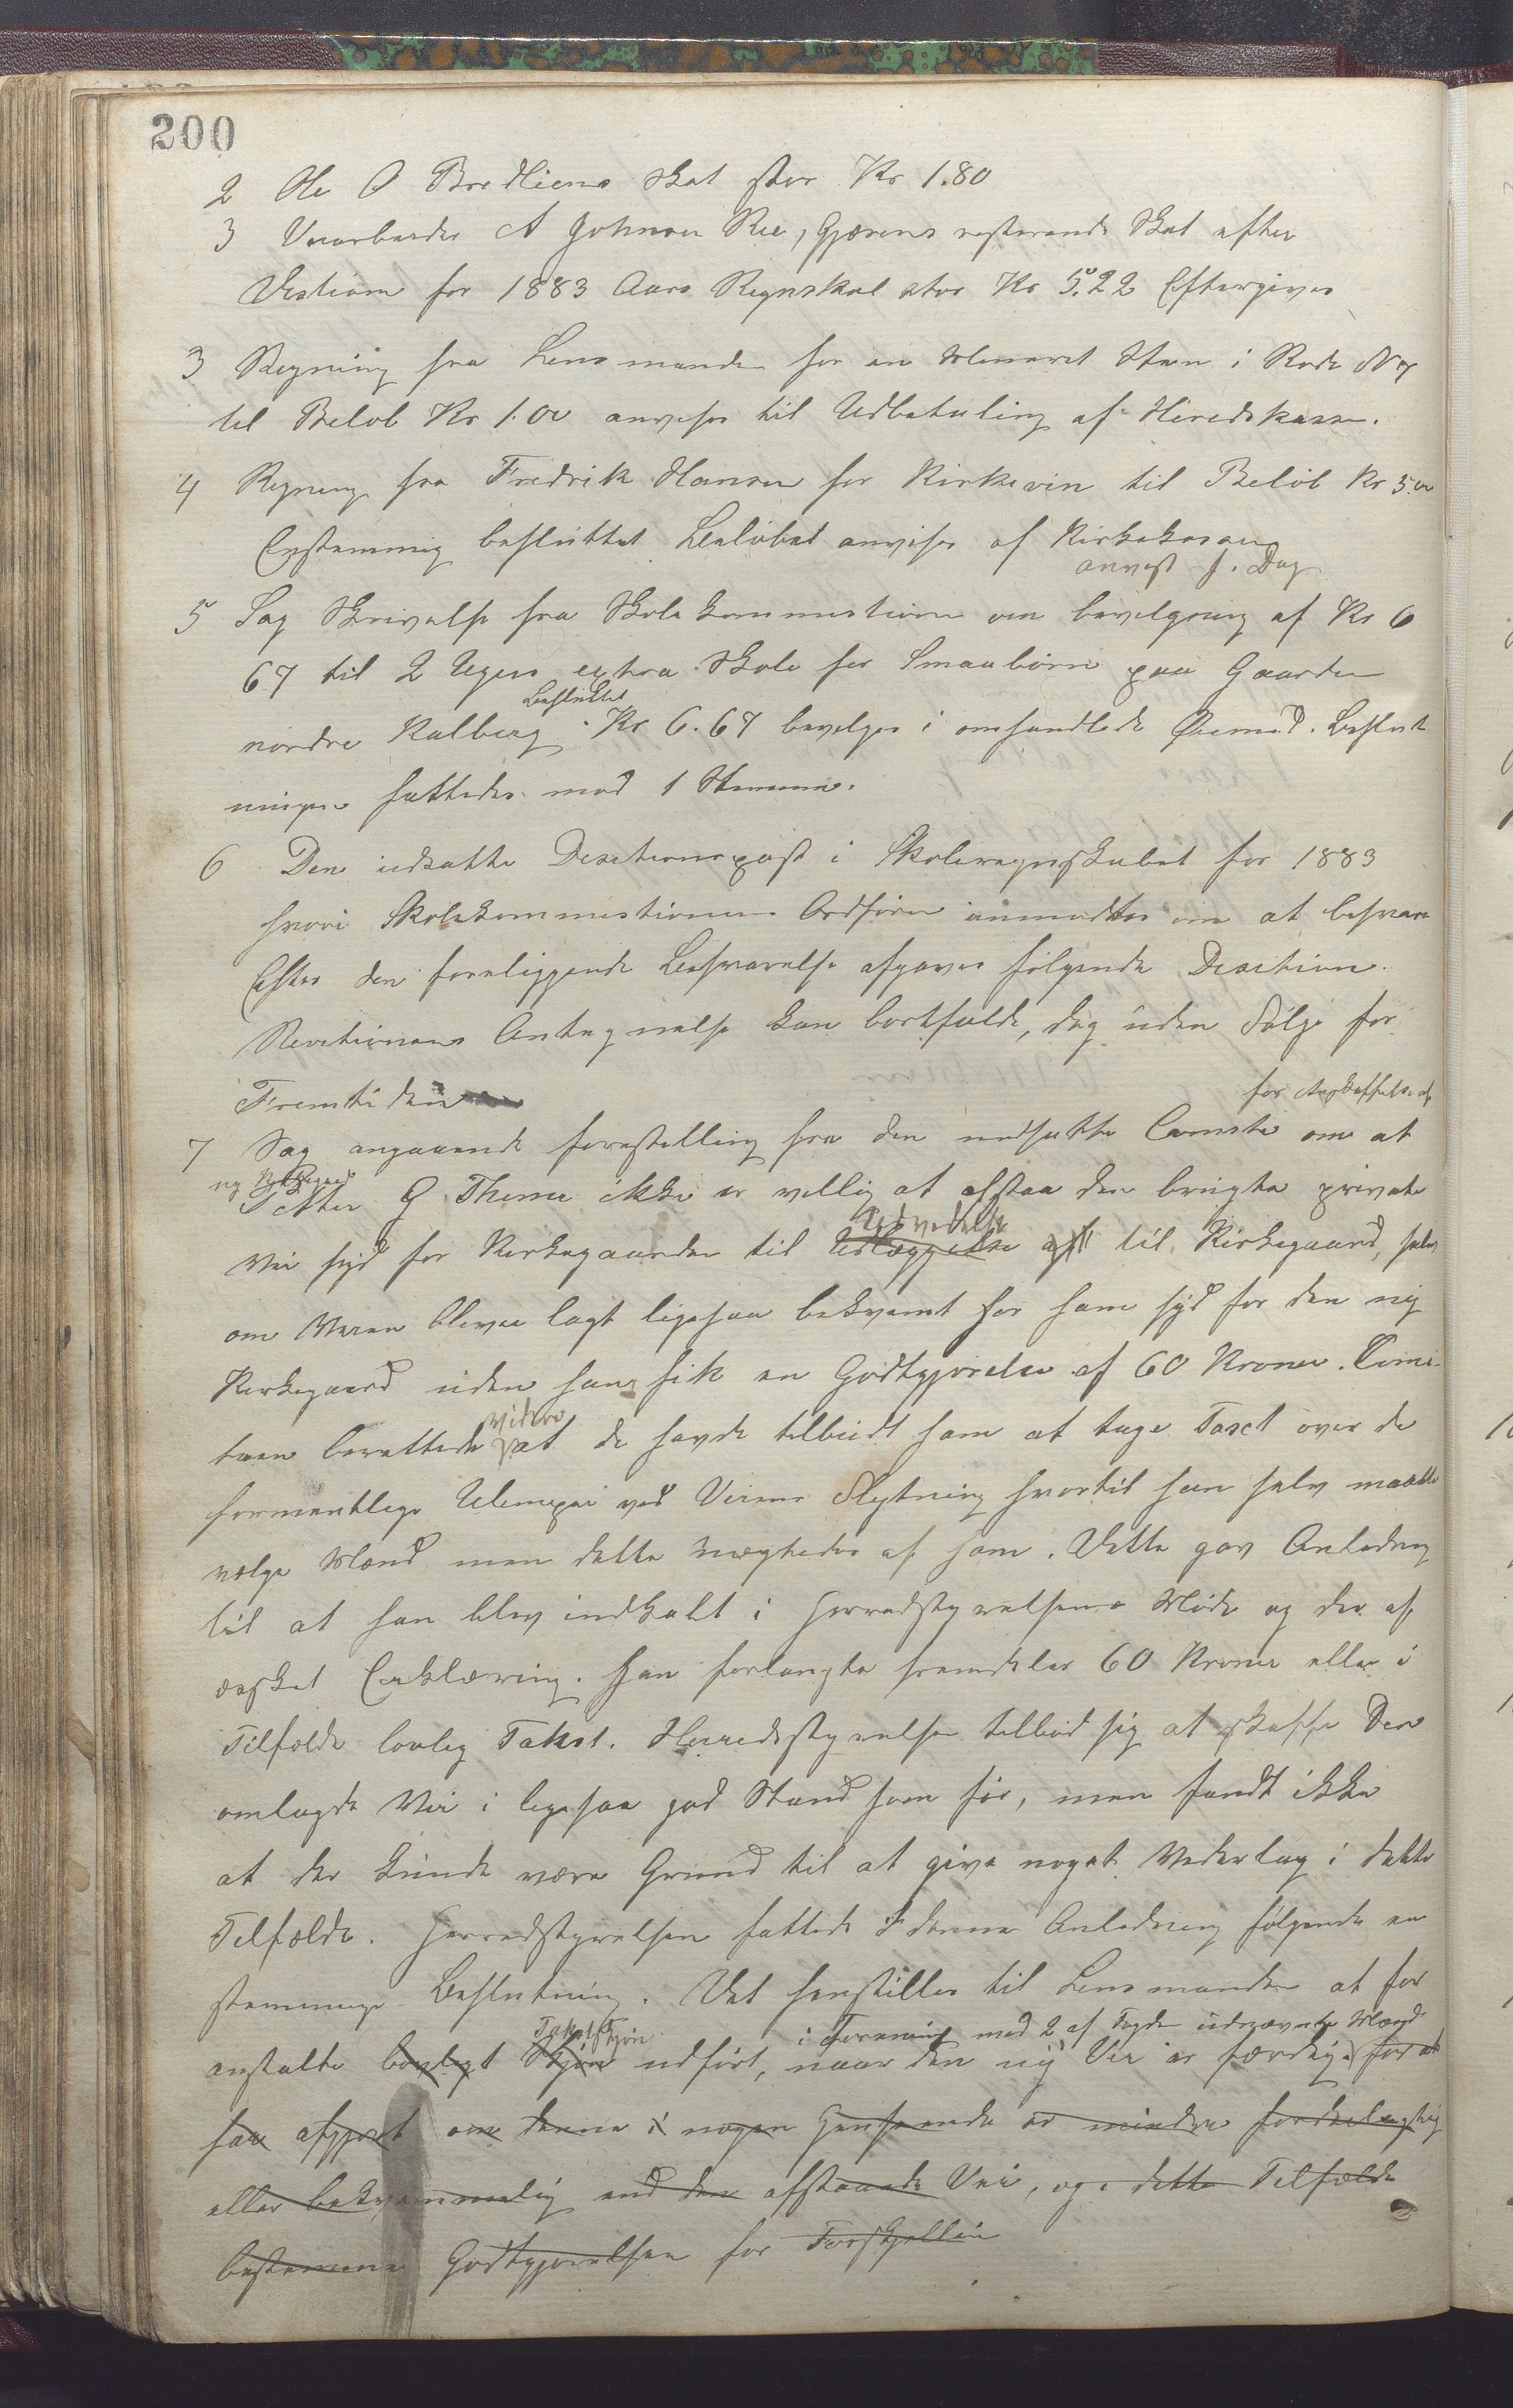 200
2 Ole O Bredliens Skat stor Kr 1.80
3 A Johnsen Ree, Gjærens resterende Skat efter
for 1883 Aars Regnskab stor Kr 5.22 Eftergives
3 Regning fra Lensmanden for en i Rode No 7
til Beløb Kr 1.00 anvises til Udbetaling af Heredskassen.
4 Regning fra Fredrik Hansen for Kirkevin til Beløb Kr 5.00
Enstemmig besluttet Beløbet anvises af Kirkekassen
anvist f. Dag
5 Sag Skrivelse fra Skolekommistionen om bevilgning af Kr 6
67 til 2 Ugers extra Skole for Smaabørn paa Gaarden
Besluttet
nordre Kalberg. Kr 6.67 bevilges i omhandlede Øiemed. Beslut
ningen fattedes mod 1 Stemme.
6 Den udsatte Desitionspost i Skoleregnskabet for 1883
hvori Skolekommistionens Ordfører anmodtes om at besvare
Efter den foreliggende Besvarelse afgaves følgende Desition.
Revitionens Antegnelse kan bortfalde, dog uden Følge for
Fremtiden
for Anskaffelse af
7 Sag angaaende forestilling fra den nedsatte Comite om at
ny
Peter G Thime ikke er villig at afstaa den brugte private
Udvidelse
Vei syd for Kirkegaarden til Udlæggelse af til Kirkegaard, selv
om Veien blever lagt ligesaa bekvemt for ham syd for den ny
Kirkegaard uden han fik en Godtgjørelse af 60 Kroner. Comi-
videre
teen berettede at de havde tilbudt ham at tage Taxt over de
formentlige Ulemper ved Veiens Flytning hvortil han selv maatte
vælge Mænd men dette nægtedes af ham. Dette gav Anledning
til at han blev indkaldt i Herredsstyrelsens Møde og der af
æsket Erklæring. Han forlangte fremdeles 60 Kroner eller i
Tilfælde lovlig Takst. Herredsstyrelsen tilbød sig at skaffe Den
omlagde Vei i ligesaa god Stand som før, men fandt ikke
at der kunde være Grund til at give noget Vederlag i dette
Tilfælde. Herredsstyrelsen fattede i denne Anledning følgende en
stemmige Beslutning. Det henstilles til Lensmanden at for
Takstskjøn i Forening med 2 af Fogden udnævnte Mænd
anstalte lovligt Skjøn udført, naar den ny Vei er færdig for at
faa afgjort om denne i nogen Henseende er mindre fordelagtig
eller bekvemmelig end den afstaaede Vei, og i dette Tilfælde
bestemme Godtgjørelsen for Forskjellen